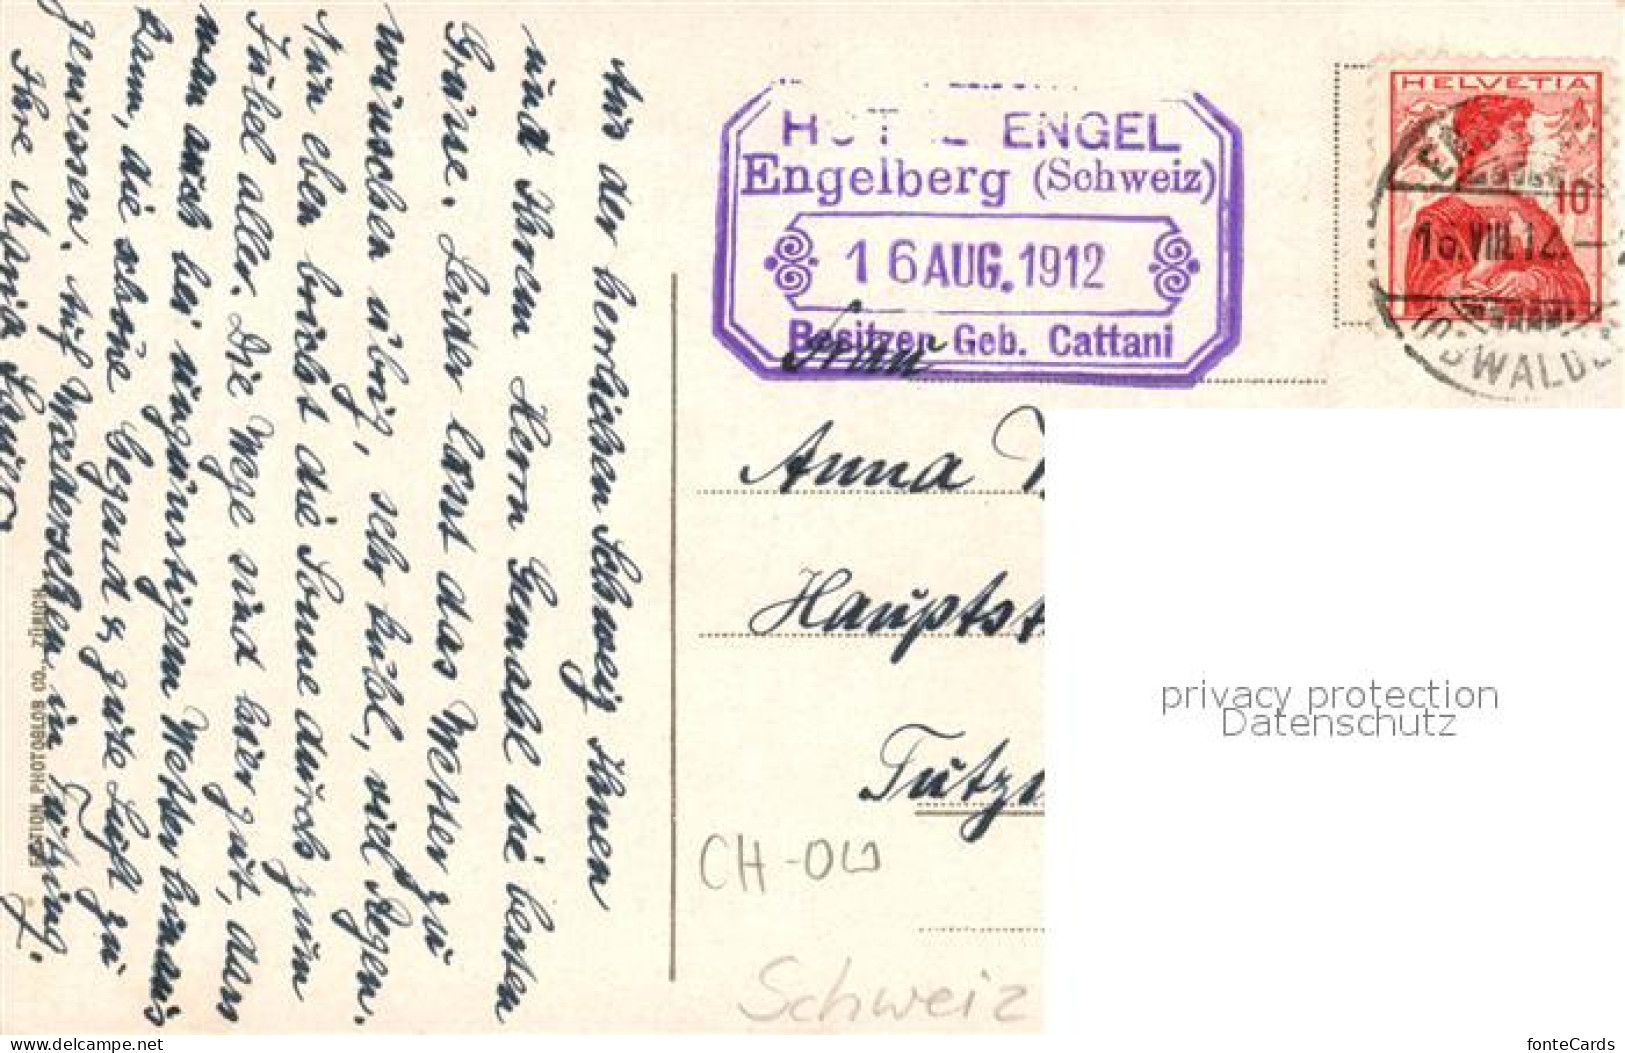 Aus der herrlichen Schweiz Ihnen
und Ihrem Herrn Gemahl die besten
Grüsse. Leider lässt das Wetter zu
wünschen übrig, sehr kühl, viel Regen.
Nun eben bricht die Sonne durch zum
Jubel aller. Die Wege sind hier gut, dass
man auch bei ungünstigem Wetter hinaus
kann, die schöne Gegend &, gute Luft zu
geniessen. Auf Wiedersehen in Tutzing.
Ihre Maria
EDITION PHOTOGLOB CO., ZÜRICH
HOTEL ENGEL
Engelberg (Schweiz)
16 AUG. 1912
Besitzer Geb. Cattani
HELVETIA
10
16.VIII.12.
OBWALDEN
Frau
Anna
Hauptst
Tutzi
CH-OW
Schweiz
privacy protection
Datenschutz
www.delcampe.net
fonteCards